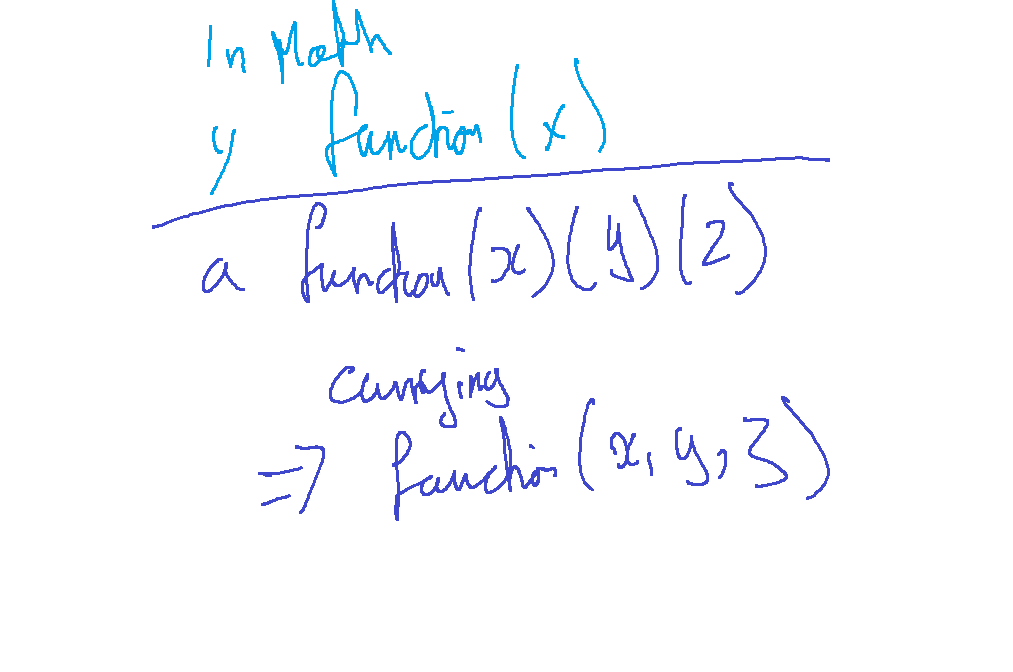 In Math
y function (x)
a function (x)(y)(z)
currying
=> function (x, y, z)